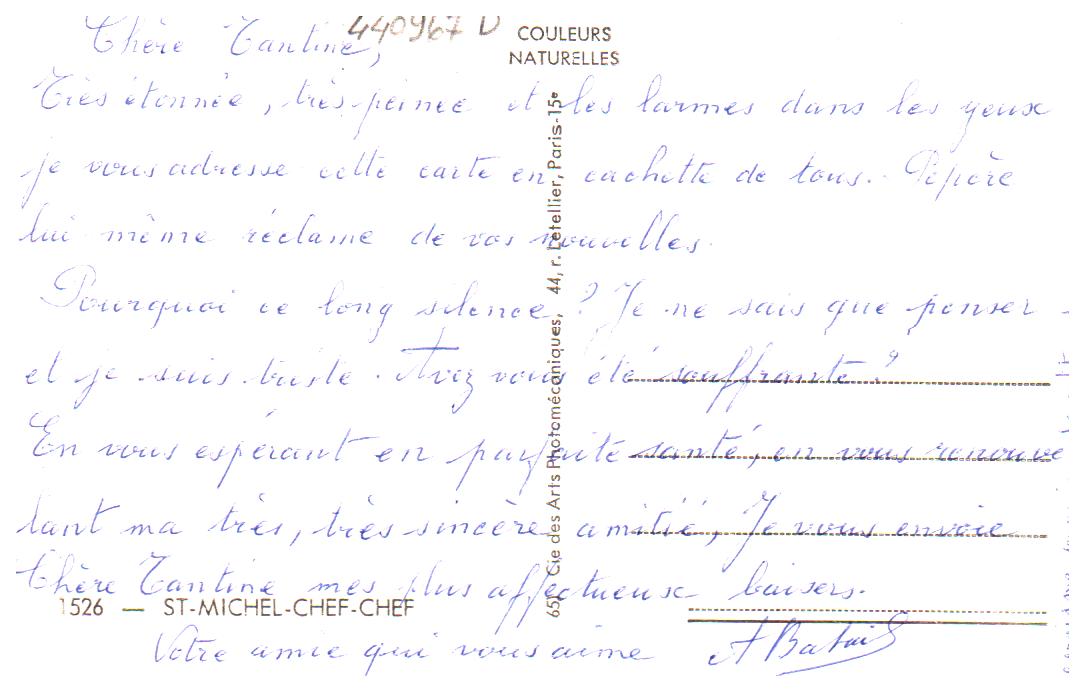 440967 D
COULEURS
NATURELLES
Chère Tantine,
Très étonnée, très peinée et les larmes dans les yeux
je vous adresse cette carte en cachette de tous. Pépère
lui même réclame de vos nouvelles.
Pourquoi ce long silence ? Je ne sais que penser
et je suis triste. Avez vous été souffrante ?
En vous espérant en parfaite santé, en vous renouve
lant ma très, très sincère amitié, Je vous envoie
Chère Tantine mes plus affectueux baisers.
1526 — ST-MICHEL-CHEF-CHEF
Votre amie qui vous aime
651 Cie des Arts Photomécaniques, 44, r. Letellier, Paris-15e